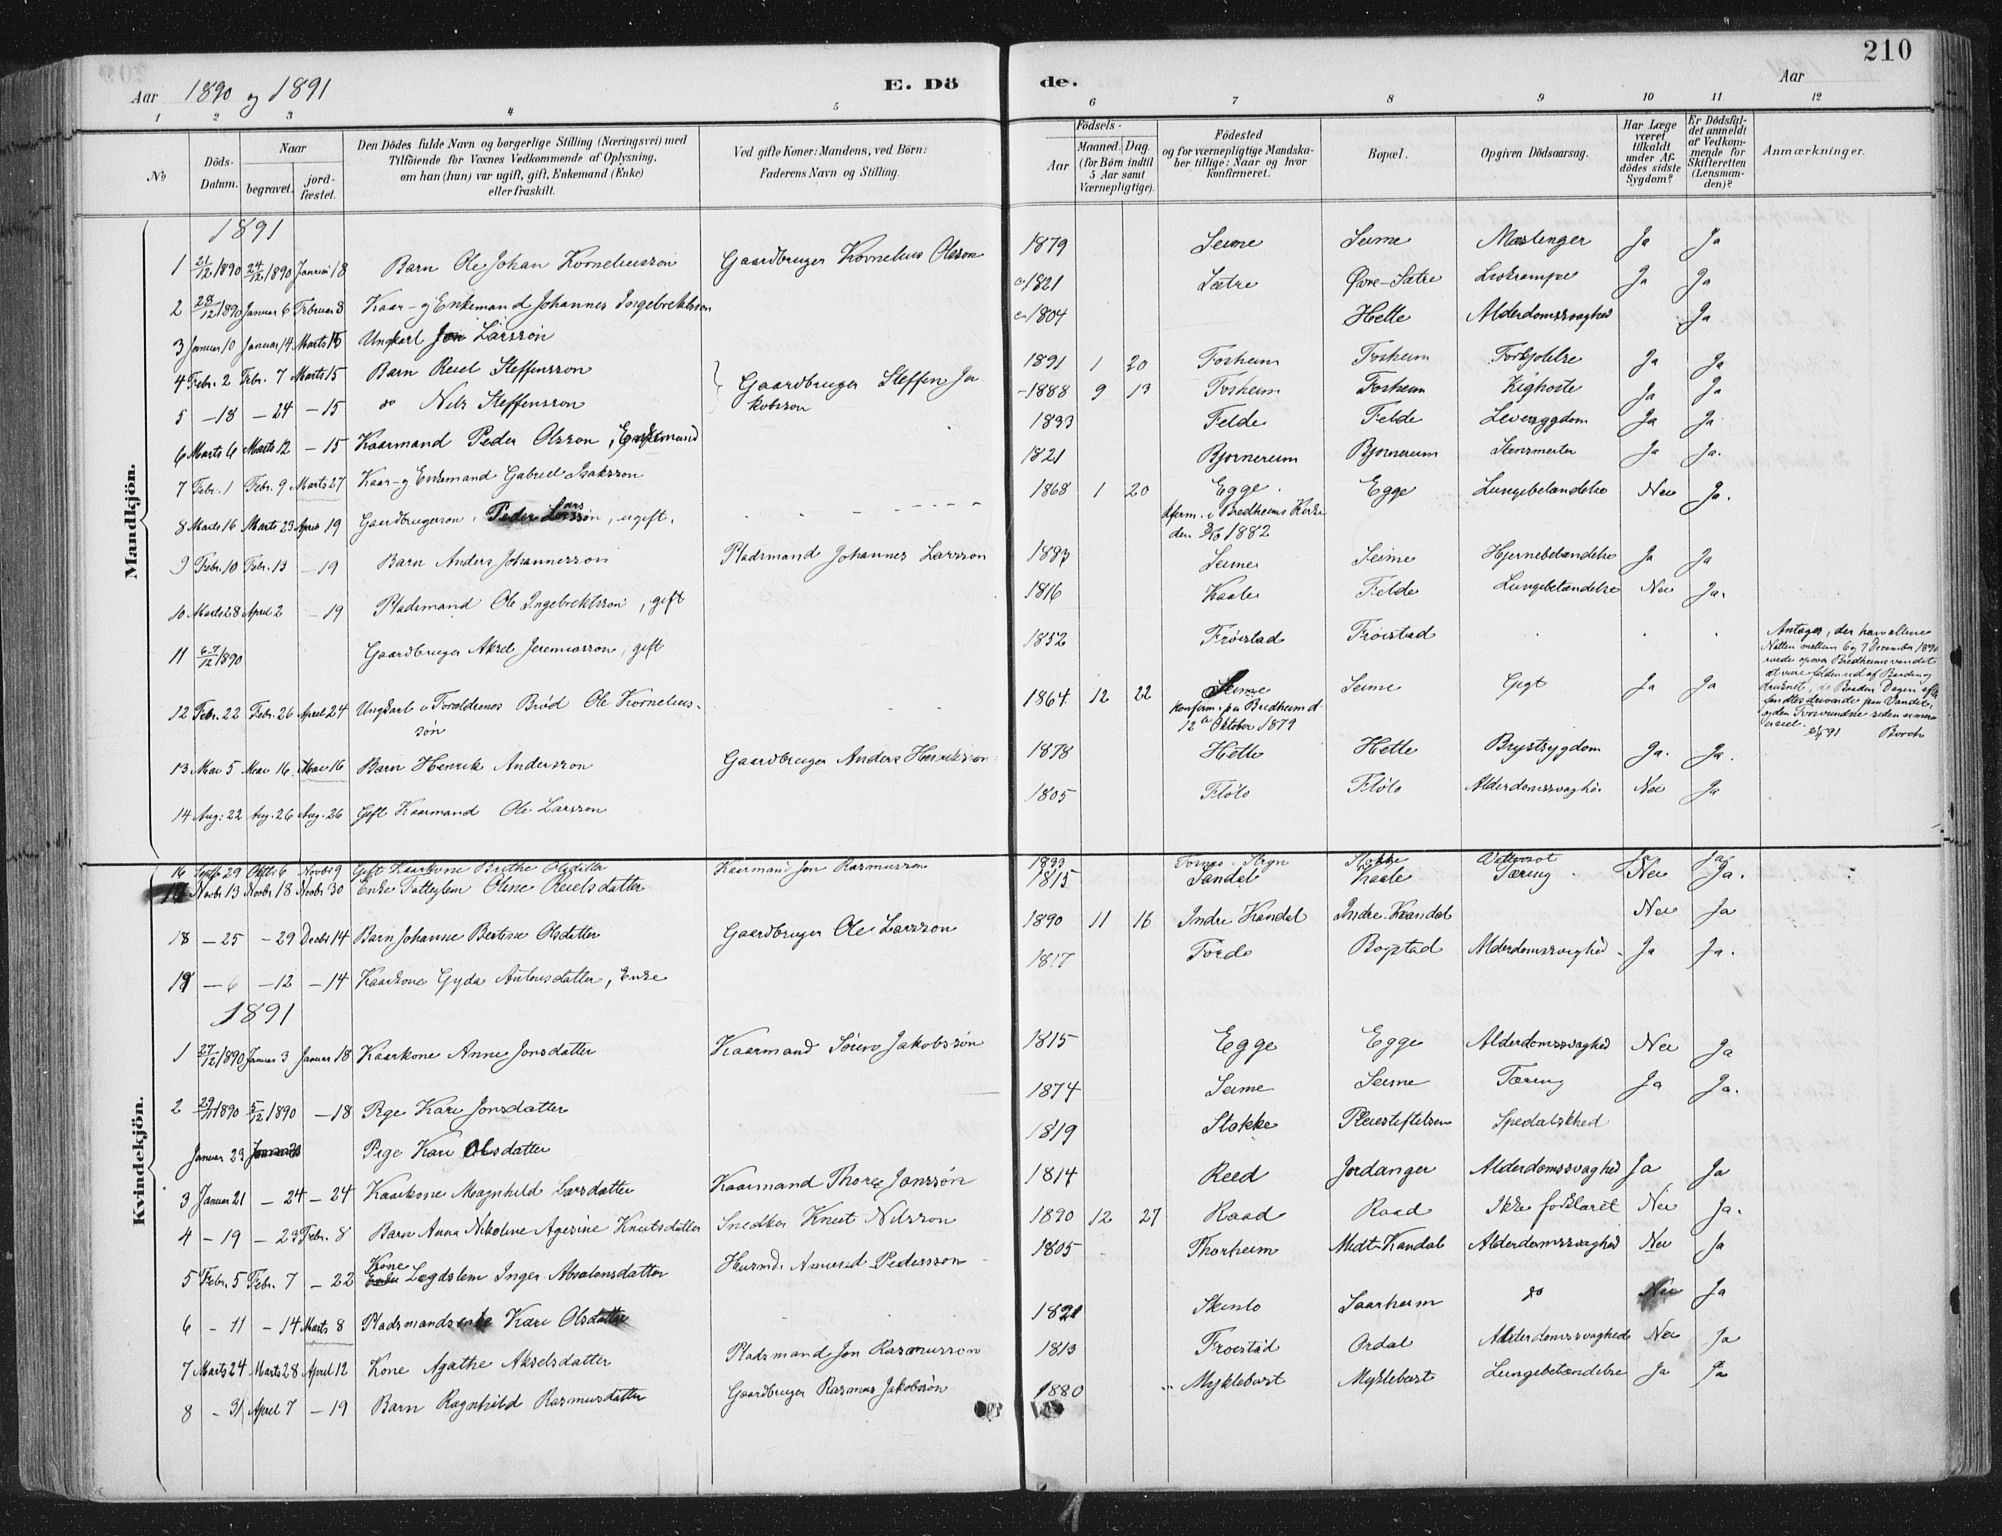 210
Aar 1890 og 1891 E. Dö de. Aar
1 2 3 4 5 6 7 8 9 10 11 12
No
Döds-Datum.
Naar
begravet.
jord-fæstet.
Den Dödes fulde Navn og borgerlige Stilling (Næringsvei) med
Tilföiende for Voxnes Vedkommende af Oplysning,
om han (hun) var ugift, gift, Enkemand (Enke)
eller fraskilt.
Ved gifte Koner: Mandens, ved Börn:
Faderens Navn og Stilling.
Födsels-
Aar
Maaned. Dag.
(for Börn indtil
5 Aar samt
Værnepligtige).
Födested
og for værnepligtige Mandska-
ber tillige: Naar og hvor
konfirmeret.
Bopæl.
Opgiven Dödsaarsag.
Har Læge
været
tilkaldt
under Af-
dödes sidste
Sygdom?
Er Dödsfal-
det anmeldt
af Vedkom-
mende for
Skifteretten
(Lensman-
den)?
Anmærkninger.
Mandkjön.
1891
1 21/12 1890 24/12 1890 Januar 18 Barn Ole Johan Korneliussøn Gaardbruger Kornelius Olssøn 1879 Seime Seime Mæslinger Ja Ja
2 28/12 1890 Januar 6 Februar 8 Kaar- og Enkemand Johannes Ingebrektssøn 1821 Sætre Øvre-Sætre Ja Ja
3 Januar 10 Januar 14 Marts 15 Ungkarl Jon Larssøn 1804 Hette Alderdomssvaghed Ja
4 Febr. 2 Febr. 7 Marts 15 Barn Reiel Steffenssøn Gaardbruger Steffen Ja 1891 1 20 Fosheim Fosheim Forkjølelse Ja Ja
kobssøn
5 -18 -24 -15 do Nils Steffenssøn 1888 9 13 Fosheim Fosheim Kighoste Ja Ja
6 Marts 6 Marts 12 -15 Kaarmand Peder Olssøn, Enkemand Felde Felde Leversygdom Ja Ja
7 Febr. 1 Febr. 9 Marts 27 Kaar- og Enkemand Gabriel Isakssøn 1821 Bjørnereim Bjørnereim Ja Ja.
8 Marts 16 Marts 23 April 19 Gaardbrugersøn, Peder Larssøn, ugift. 1868 1 20 Egge Egge Lungebetændelse Nei Ja.
Kfirm. i Bredheims Kirke
den 1882
9 Febr. 10 Febr. 13 -19 Barn Anders Johannessøn Pladsmand Johannes Larssøn Seime Seime Hjernebetændelse Ja Ja
10 Marts 28 April 2 -19 Pladsmand Ole Ingebrektssøn, gift 1816 Kaale Felde Lungebetændelse Nei Ja.
11 6-7/12 1890 Gaardbruger Aksel Jeremiassøn, gift 1852 Frøistad Frøistad
Antages, der han
Natten mellem 6 og 7 December 1890
Bredheimsvandet
at være falden ud af Baaden og
druknet, Baaden Dagen efter
fandtes drivende paa Vandet,
og den Forsvundne siden
seet. 91
12 Febr. 22 Febr. 26 April 24 Ungkarl i Forældrenes Brød Ole Kornelius- 1864 12 22 Seime Seime Gigt Ja Ja
søn konfirm. paa Bredheim d
12te Oktober 1879
13 Mai 5 Mai 16 Mai 16 Barn Henrik Anderssøn Gaardbruger Anders Henrikssøn 1878 Hette Hette Brystsygdom Ja. Ja.
14 Aug. 22 Aug. 26 Aug. 26 Gift Kaarmand Ole Larssøn 1805 Fløto Fløto Alderdomssvaghed Nei Ja
Kvindekjön.
16 Septbr 29 Oktbr 6 Novbr 9 Gift Kaarkone Brithe Olsdatter Kaarmand Jon Rasmussøn Stryn Stokke Ja Ja
17 Novbr 13 Novbr 18 Novbr 30 Enke Fattiglem Oline Reielsdatter 1815 Sandal Kaale Tæring Nei Ja.
18 -25 -29 Decbr 14 Barn Johanne Bertine Olsdatter Gaardbruger Ole Larssøn 1890 11 16 Indre Kandal Indre Kandal Nei Ja
19 -6 -12 -14 Kaarkone Gyda Antonsdatter, Enke 1817 Førde Bogstad Alderdomssvaghed Ja Ja.
1891
1 27/12 1890 Januar 3 Januar 18 Kaarkone Anne Jonsdatter Kaarmand Søren Jakobssøn 1815 Egge Egge Alderdomssvaghed Nei Ja
2 29/11 1890 5/12 1890 -18 Pige Kari Jonsdatter 1874 Seime Seime Tæring Ja Ja.
Januar 23 Pige Kari Olsdatter 1819 Stokke Pleiestiftelsen Spedalskhed
3 Januar 21 -24 -24 Kaarkone Magnhild Larsdatter Kaarmand Thore Janssøn 1814 Reed Jordanger Alderdomssvaghed Ja Ja
4 -19 -23 Febr. 8 Barn Anna Nikoline Agesine Knutsdatter Snedker Knut Nilssøn 1890 12 27 Raad Raad Ikke forklaret Nei Ja.
5 Febr. 5 Febr. 7 -22 Kone Lægdslem Inger Absalonsdatter Husmd. Amund Pederssøn 1805 Thorheim Midt-Kandal Alderdomssvaghed Nei Ja
6 -11 -14 Marts 8 Pladsmandsenke Kari Olsdatter 1821 Skinlo Saarheim do Nei Ja
7 Marts 24 Marts 28 April 12 Kone Agathe Akselsdatter Pladsmand Jon Rasmussøn 1813 Frøistad Ordal Alderdomssvaghed Nei Ja
8 -31 April 7 -19 Barn Ragnhild Rasmusdatter Gaardbruger Rasmus Jakobssøn 1880 Myklebust Myklebust Lungebetændelse Ja Ja